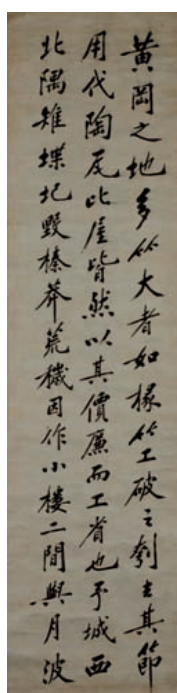 黃岡之地多竹大者如椽竹工破之刳去其節
用代陶瓦比屋皆然以其價廉而工省也予城西
北隅雉堞圮毀榛莽荒穢因作小樓二間與月波